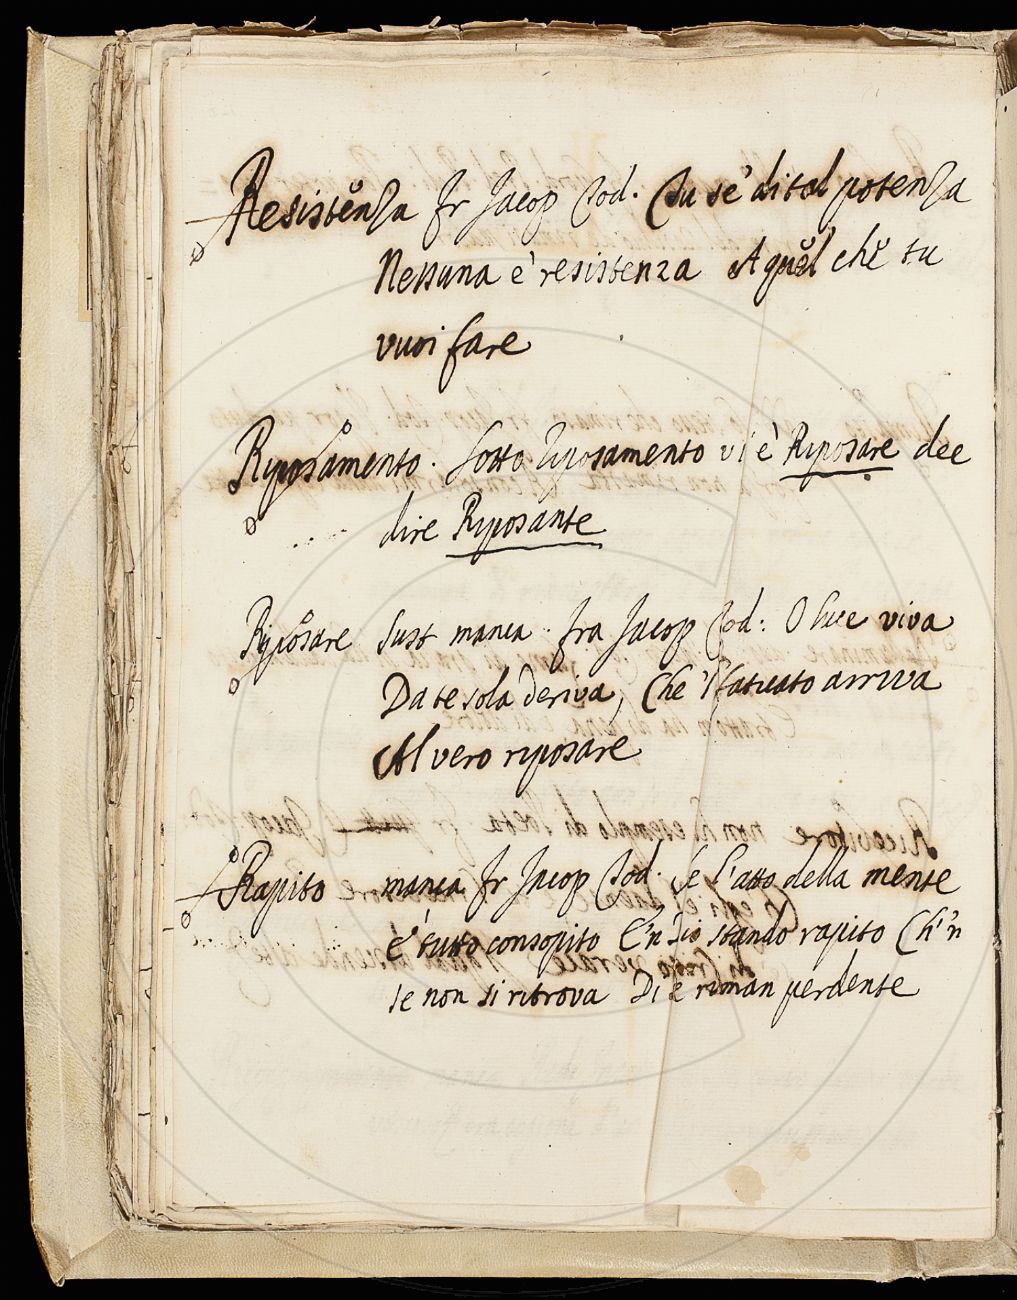 Resistenza Fr Jacop Tod. Tu se' di tal potenza
Nessuna è resistenza A quel che tu
vuoi fare
Riposamento. Sotto Riposamento v'è Riposare dee
dire Riposante
Riposare Sust manca fra Jacop Tod: O luce viva
Da te sola deriva, Che 'l satuato arriva
Al vero riposare
Rapito manca Fr Jacop Tod. Se l'atto della mente
è tutto consopito E'n Dio stando rapito Ch'n
se non si ritrova Di e riman perdente